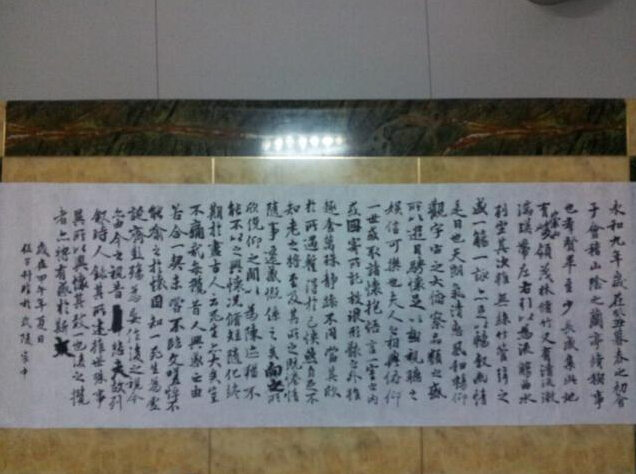 永和九年歲在癸丑暮春之初會
于會稽山陰之蘭亭修稧事
也群賢畢至少長咸集此地
有崇山峻領茂林修竹又有清流激
湍暎帶左右引以為流觴曲水
列坐其次雖無絲竹管弦之
盛一觴一詠亦足以暢敘幽情
是日也天朗氣清惠風和暢仰
觀宇宙之大俯察品類之盛
所以遊目騁懷足以極視聽之
娛信可樂也夫人之相與俯仰
一世或取諸懷抱悟言一室之內
或因寄所託放浪形骸之外雖
趣舍萬殊靜躁不同當其欣
於所遇暫得於己快然自足不
知老之將至及其所之既惓情
隨事遷感慨係之矣向之所
欣俛仰之間以為陳迹猶不
能不以之興懷況脩短隨化終
期於盡古人云死生亦大矣豈
不痛哉每攬昔人興感之由
若合一契未嘗不臨文嗟悼不
能喻之於懷固知一死生為虛
誕齊彭殤為妄作後之視今
亦由今之視昔悲夫故列
敘時人錄其所述雖世殊事
異所以興懷其致一也後之攬
者亦將有感於斯文
歲在甲午年夏日
臨於武陵家中